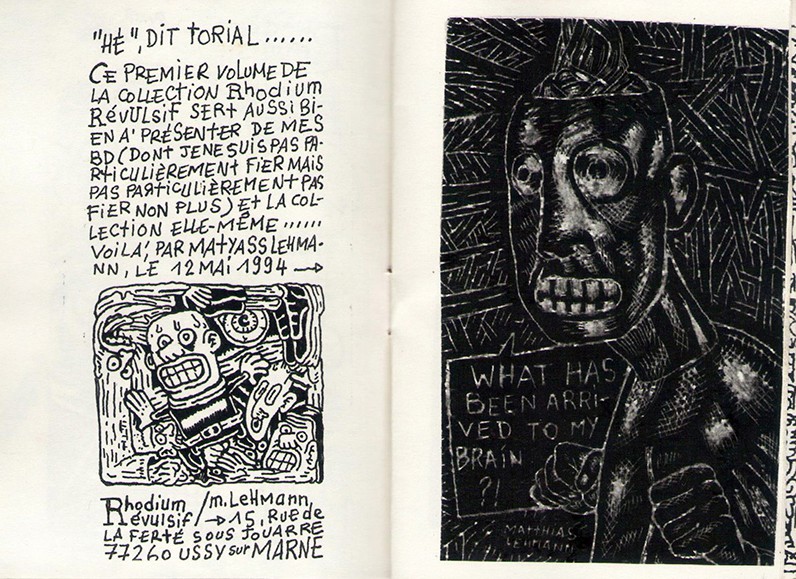 "HÉ", DIT TORIAL ......
CE PREMIER VOLUME DE
LA COLLECTION Rhodium
RÉVULSIF SERT AUSSI BI-
EN A' PRÉSENTER DE MES
BD (DONT JE NE SUIS PAS PA-
RTICULIÈREMENT FIER MAIS
PAS PARTICULIÈREMENT PAS
FIER NON PLUS) ET LA COL-
LECTION ELLE-MÊME ......
VOILA', PAR MATYASS LEHMA-
NN, LE 12 MAI 1994 →
Rhodium / m. LeHmann,
Révulsif / → 15, RUE de
LA FERTÉ SOUS JOUARRE
77260 USSY sur MARNE
WHAT HAS
BEEN ARRI-
VED TO MY
BRAIN
?!
MATTHIAS
LEHMANN